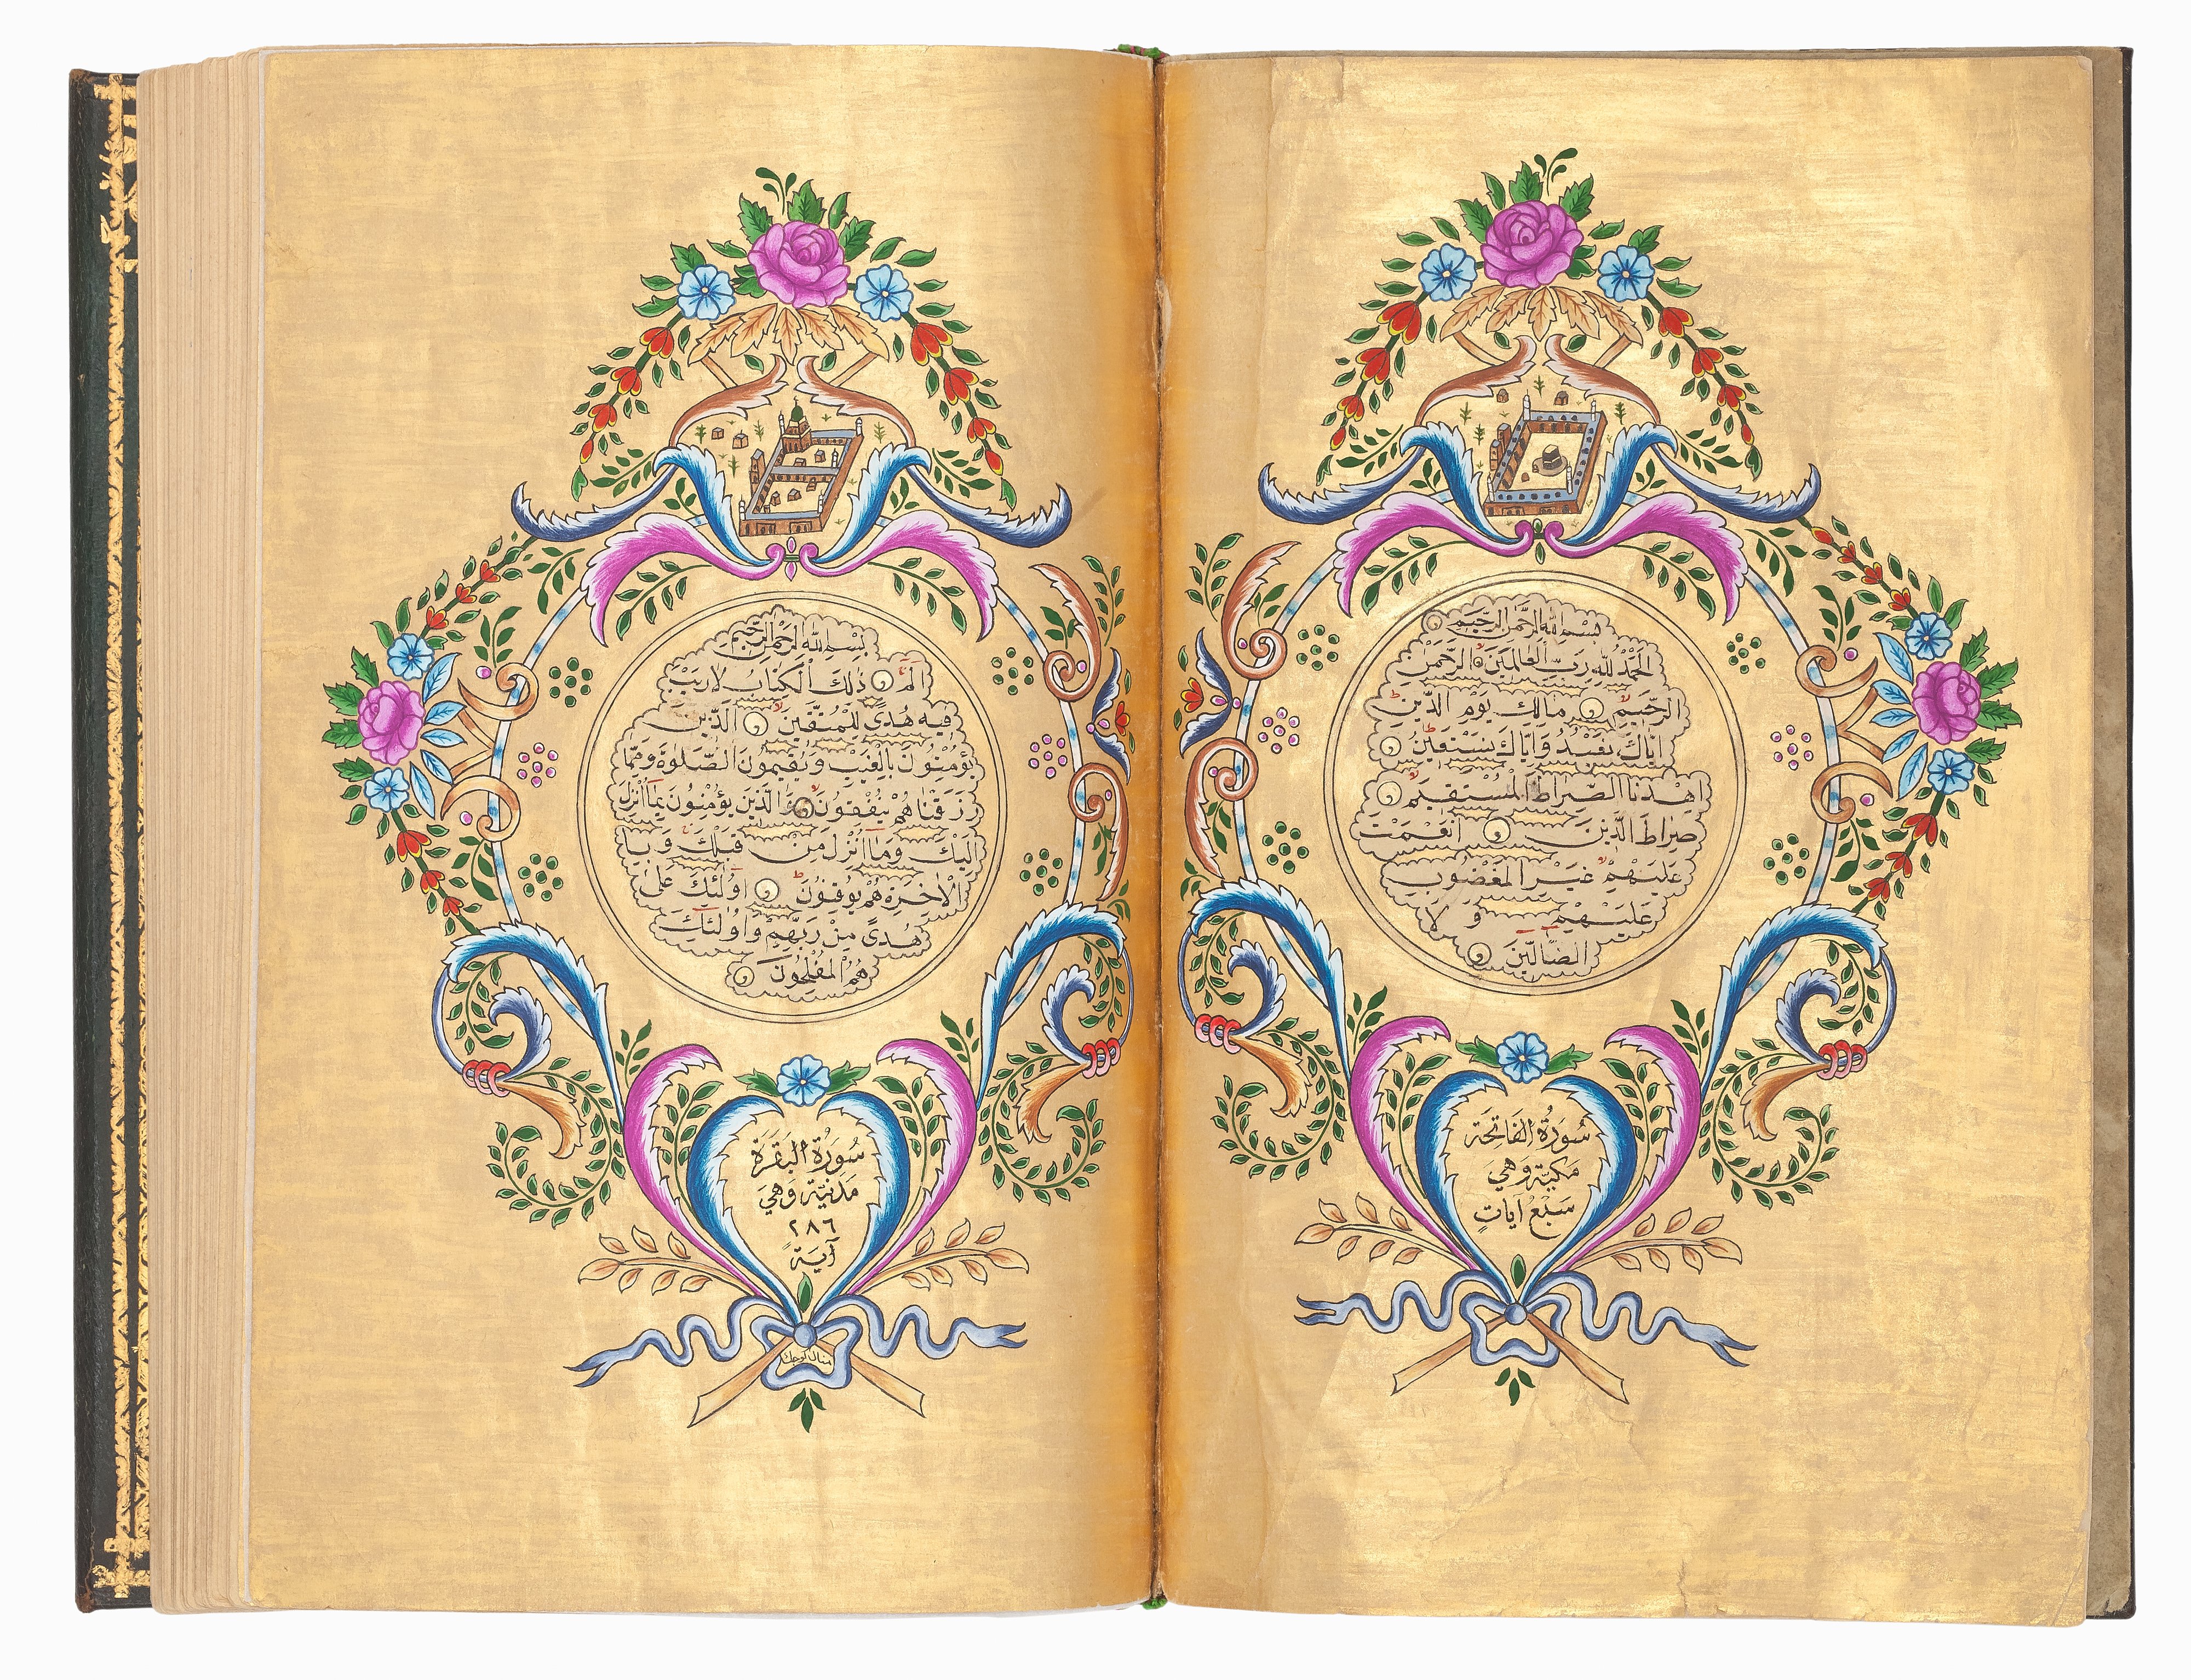 بِسْمِ اللهِ الرَّحْمٰنِ الرَّحِيمِ
اَلْحَمْدُ لِلّٰهِ رَبِّ الْعَالَمِينَ الرَّحْمٰنِ
الرَّحِيمِ مَالِكِ يَوْمِ الدِّينِ
اِيَّاكَ نَعْبُدُ وَاِيَّاكَ نَسْتَعِينُ
اِهْدِنَا الصِّرَاطَ الْمُسْتَقِيمَ
صِرَاطَ الَّذِينَ اَنْعَمْتَ
عَلَيْهِمْ غَيْرِ الْمَغْضُوبِ
عَلَيْهِمْ وَلَا
الضَّالِّينَ
سُورَةُ الفَاتِحَة
مَكِيَّة وَهِيَ
سَبْعُ آيَاتٍ
بِسْمِ اللهِ الرَّحْمٰنِ الرَّحِيمِ
الٓمٓ ذٰلِكَ الْكِتَابُ لَا رَيْبَ
فِيهِ هُدًى لِلْمُتَّقِينَ اَلَّذِينَ
يُؤْمِنُونَ بِالْغَيْبِ وَيُقِيمُونَ الصَّلٰوةَ وَمِمَّا
رَزَقْنَاهُمْ يُنْفِقُونَ وَالَّذِينَ يُؤْمِنُونَ بِمَا اُنْزِلَ
اِلَيْكَ وَمَا اُنْزِلَ مِنْ قَبْلِكَ وَبِا
لْاٰخِرَةِ هُمْ يُوقِنُونَ اُولٰئِكَ عَلٰى
هُدًى مِنْ رَبِّهِمْ وَاُولٰئِكَ
هُمُ الْمُفْلِحُونَ
سُورَةُ البَقَرَة
مَدَنِيَّة وَهِيَ
٢٨٦
آيَة